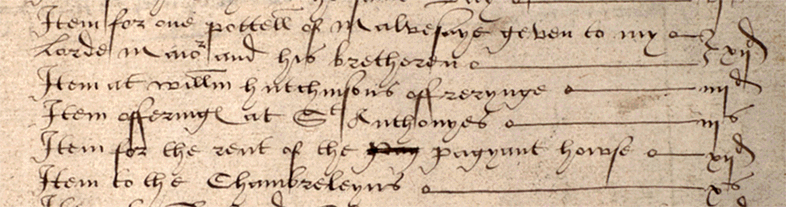 Item for one pottell of Malvesaye geven to my
Lorde Maior and his bretheren xijd
Item at willm hutchinsons offrerynge iiijd
Item offering at St Anthonyes iijs
Item for the rent of the pagyant howse xijd
Item to the Chambreleyns xs